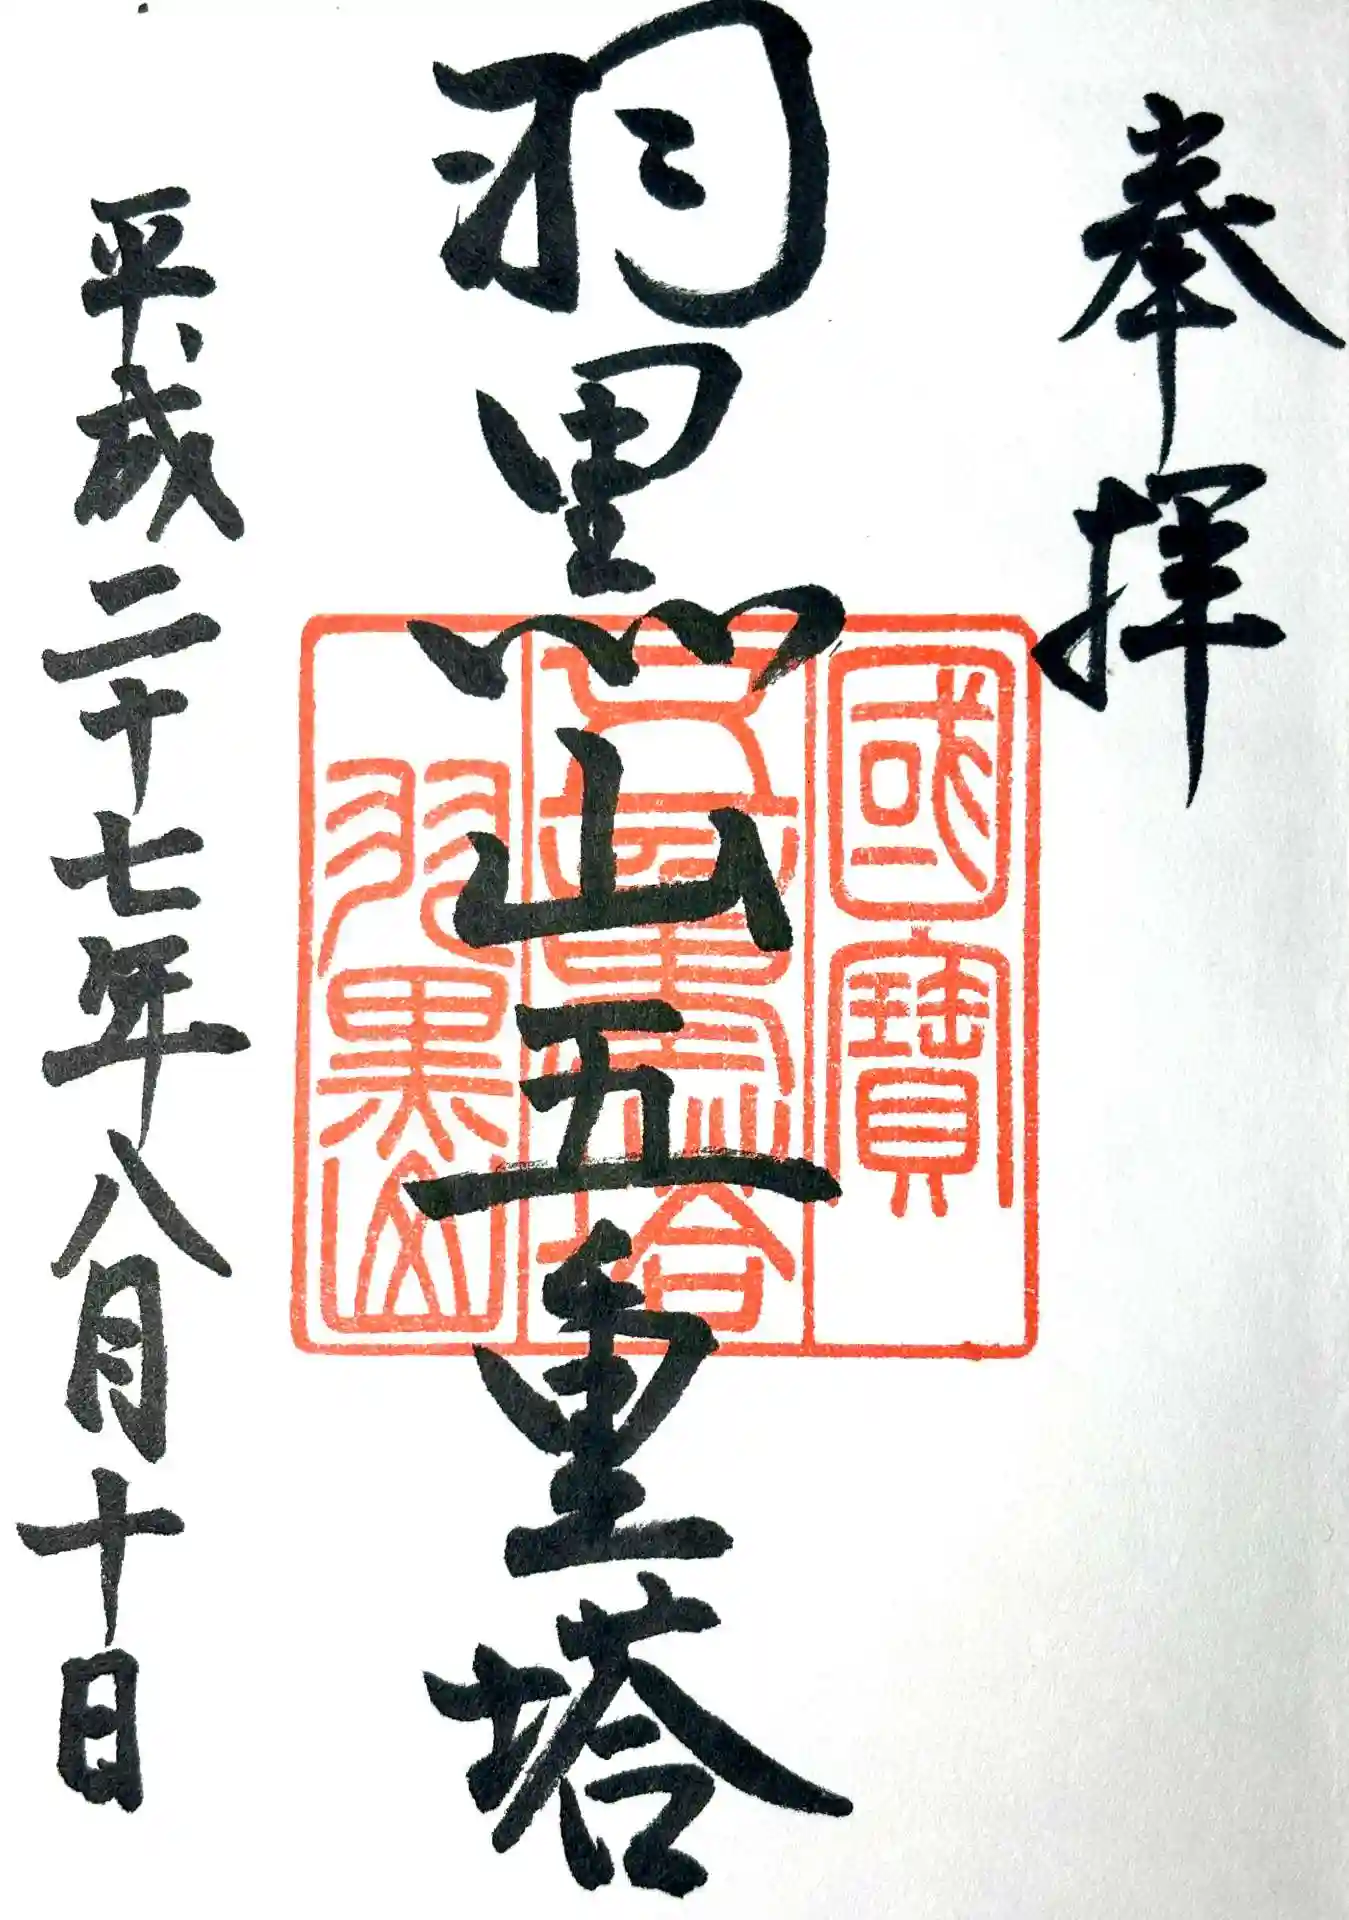 奉拝
羽黒山五重塔
平成二十七年八月十日
國寶
五重塔
羽黒山